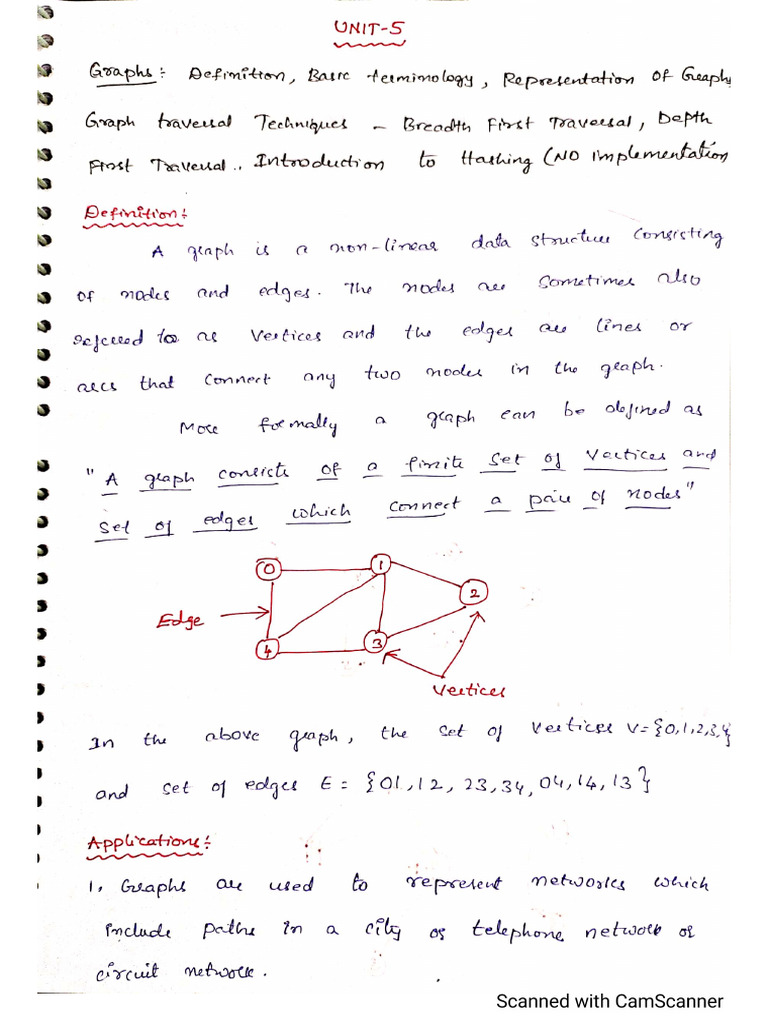 UNIT-5
Graphs: Definition, Basic terminology, Representation of Graphs
Graph traversal Techniques - Breadth First Traversal, Depth
First Traversal.. Introduction to Hashing (NO implementation
Definition:
A graph is a non-linear data structure consisting
of nodes and edges. The nodes are sometimes also
referred to as vertices and the edges are lines or
arcs that connect any two nodes in the graph.
More formally a graph can be defined as
"A graph consists of a finite set of vertices and
set of edges which connect a pair of nodes"
0 1
2
Edge
4 3
Vertices
In the above graph, the set of vertices V={0,1,2,3,4}
and set of edges E = {01,12,23,34,04,14,13}
Applications:
1, Graphs are used to represent networks which
include paths in a city or telephone network or
circuit network.
Scanned with CamScanner